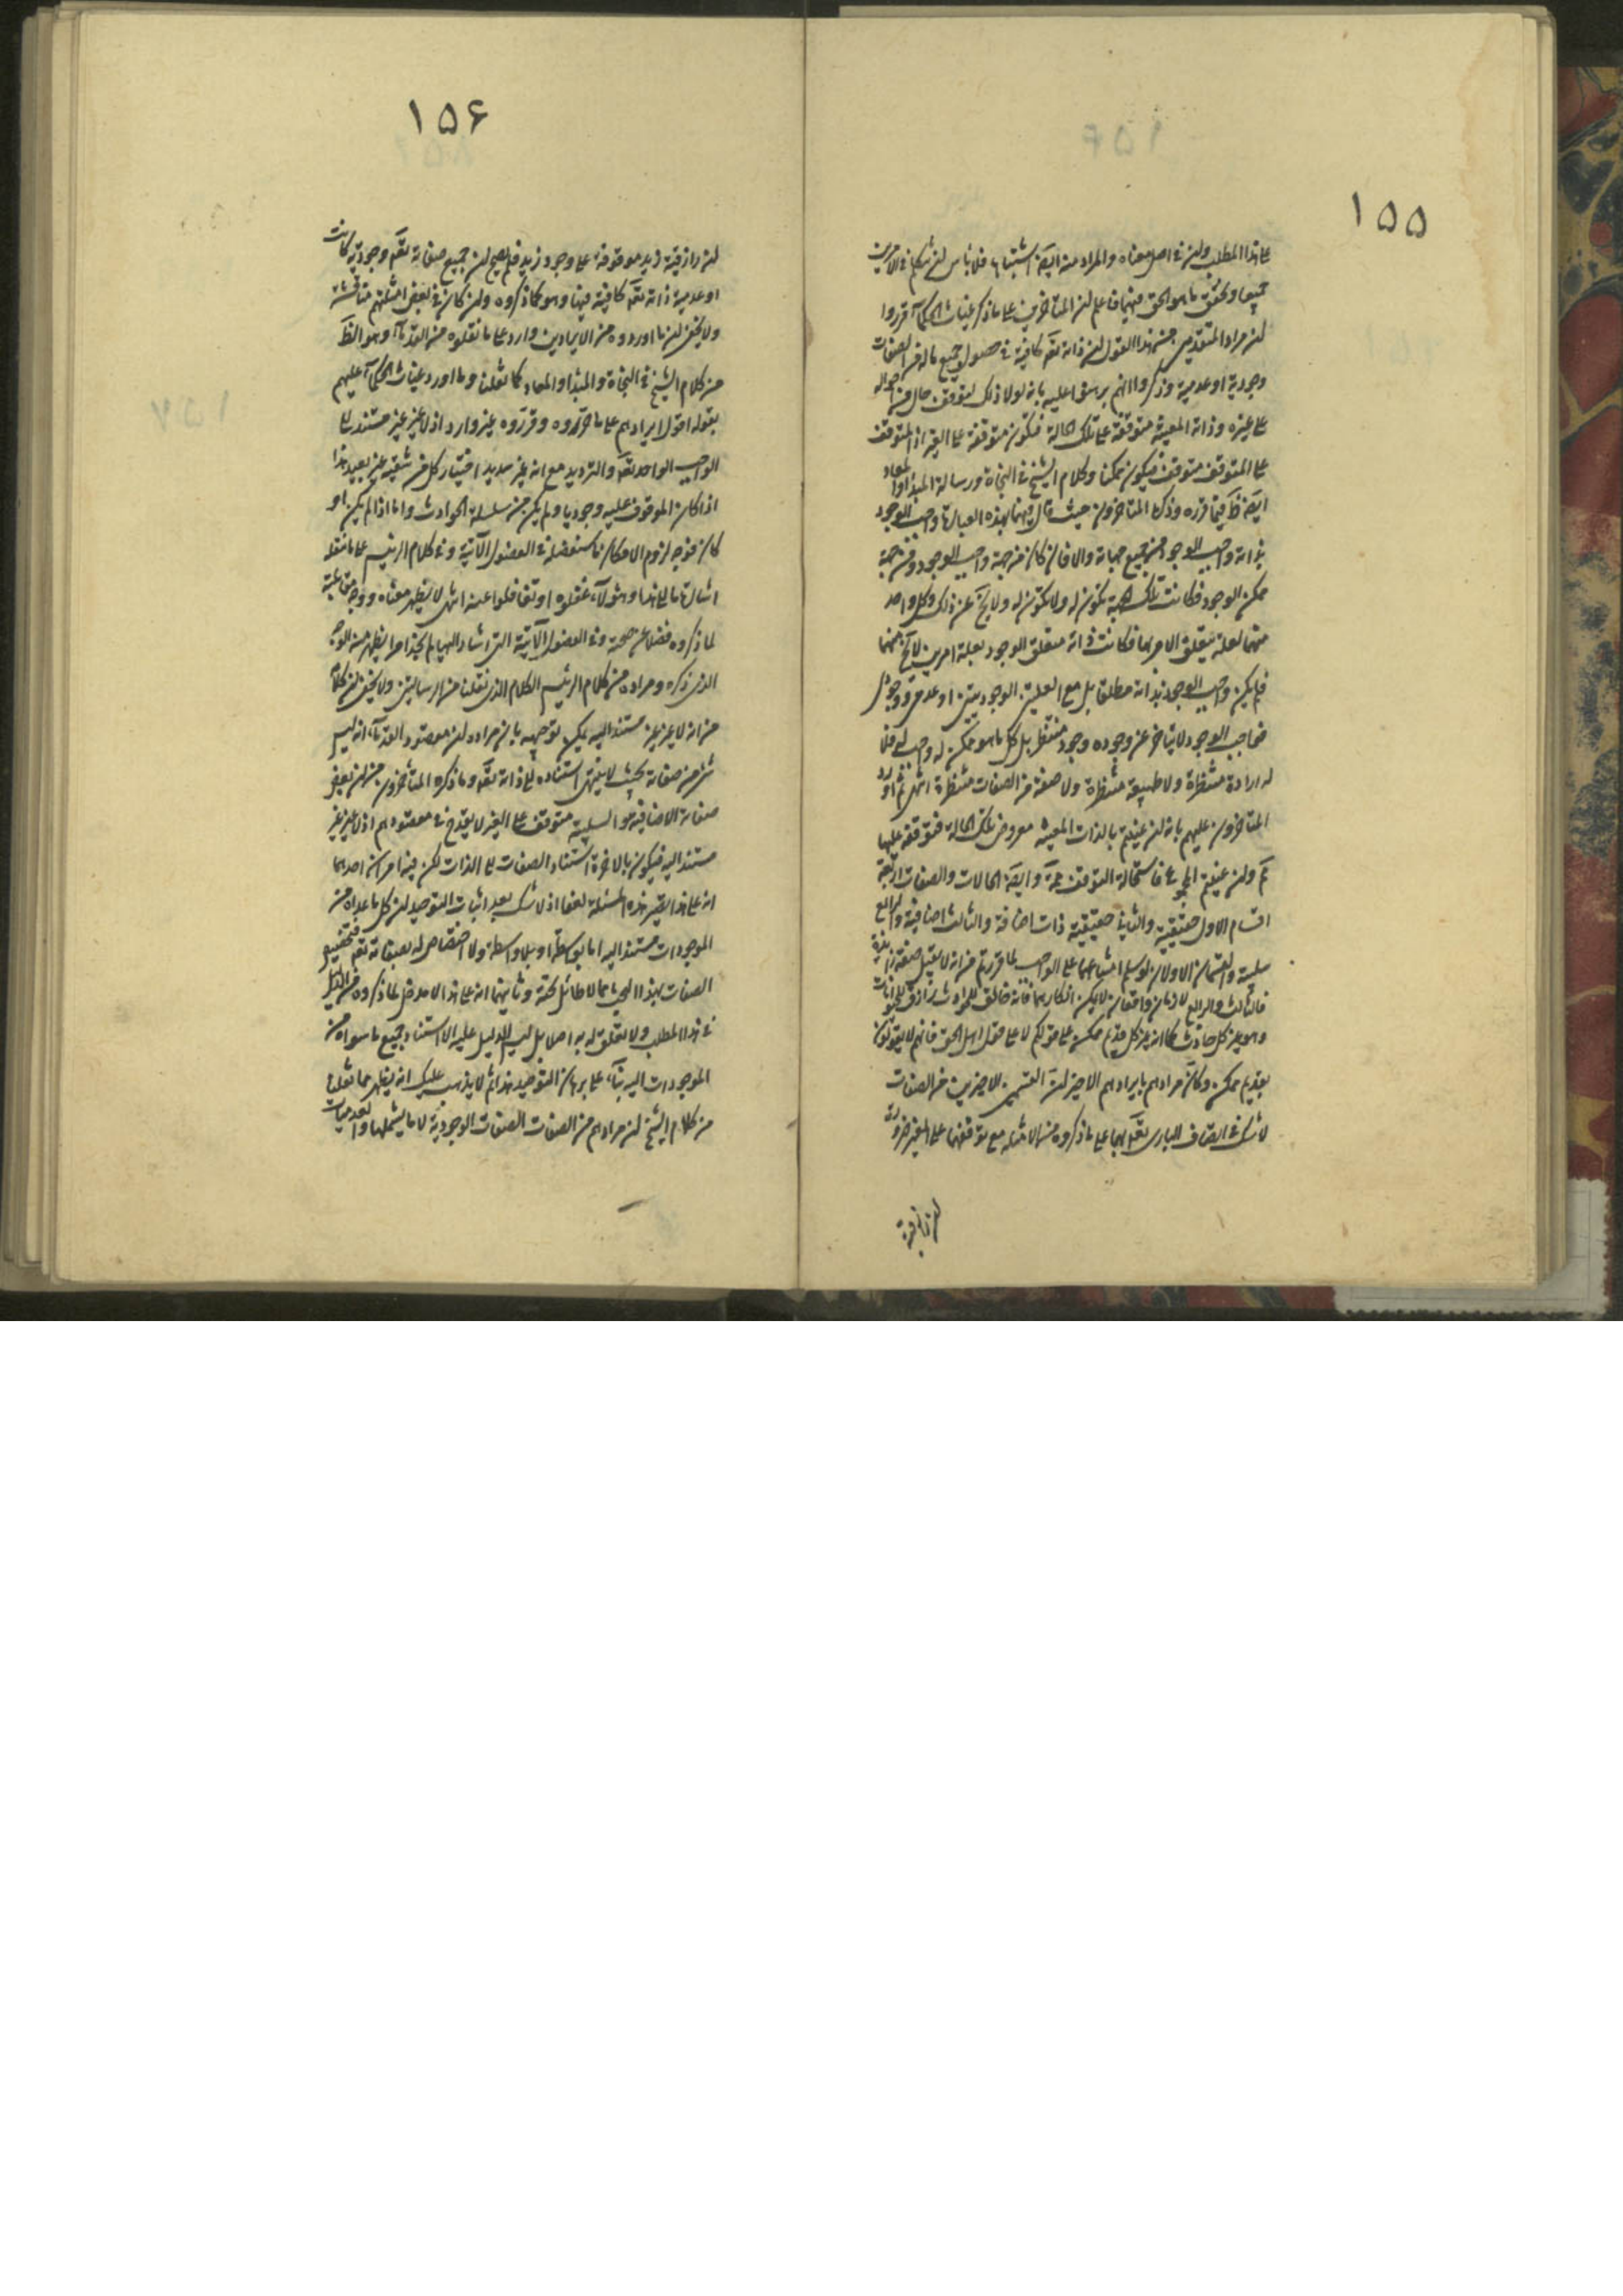 ١٥٥
على هذا المطلب وان في اصل معناه والمراد منه ايضا اشتباها فلا باس لنا ان نتكلم في الامرين
جميعا ونحقق ما هو الحق فيهما فاعلم ان المتاخرين على ما ذكر غياث الحكمآء قرروا
ان مراد المتقدمين من هذا القول ان ذاته تعه كافية في حصول جميع ماله من الصفات
وجودية او عدمية وذكروا انهم برهنوا عليه بانه لولا ذلك لتوقف حال من احواله
على غيره وذاته المعينة متوقفة على تلك الحالة فتكون متوقفة على الغير اذ المتوقف
على المتوقف متوقف فيكون ممكنا وكلام الشيخ في النجاة ورسالة المبدأ والمعاد
ايضا ظ فيما قرره وذكره المتاخرون حيث قال فيهما بهذه العبارة واجب الوجود
بذاته واجب الوجود من جميع جهاته والا فان كان من جهة واجب الوجود ومن جهة
ممكن الوجود فكانت تلك الجهة تكون له ولا تكون له ولا يخ عن ذلك وكل واحد
منهما لعلة يتعلق الامر بها فكانت ذاته متعلق الوجود بعلة امرين لا يخ منهما
فلم يكن واجب الوجود بذاته مطلقا بل مع العلتين الوجوديتين او عدمي ووجودي
فواجب الوجود لا يتاخر عن وجوده وجود منتظر بل كل ما هو ممكن له واجب له فلا
له ارادة منتظرة ولا طبيعة منتظرة ولا صفة من الصفات منتظرة انتهى ثم اورد
المتاخرون عليهم بانه ان عنيتم بالذات المعينة معروض تلك الحالة فتوقفه عليها
مم وان عنيتم المجموع فاستحالة التوقف ممه وايضا الحالات والصفات اربعة
اقسام الاول حقيقية والثاني حقيقية ذات اضافة والثالث اضافية والرابع
سلبية والقسمان الاولان لو سلم امتناعهما على الواجب لما قررتم من انه لا يقبل صفة زايدة
فالثالث والرابع لازمان واقعان لا يمكن انكارهما فانه خالق للحوادث رازق للحيوانات
وهو غير كل حادث كما انه غير كل قديم ممكن على قولكم لا على قول اهل الحق فانهم لا يقولون
بقديم ممكن وكان مرادهم بايرادهم الاخير ان القسمين الاخيرين من الصفات
لا شك في اتصاف الباري تعه بهما على ما ذكروه من الامثلة مع توقفهما على الغير ضرورة
ان رازقية
١٥۶
ان رازقية زيد موقوفة على وجود زيد فلم يصح ان جميع صفاته تعه وجودية كانت
او عدمية ذاته تعه كافية فيها وهو كما ذكروه وان كان في بعض امثلتهم مناقشة
ولا يخفى ان ما اوردوه من الايرادين وارد على ما نقلوه من القدمآء وهو الظ
من كلام الشيخ في النجاة والمبدأ والمعاد كما نقلنا وما اورد غياث الحكمآء عليهم
بقوله اقول ايرادهم على ما حرروه وقرروه غير وارد اذ لا غير غير مستند الى
الواجب الواحد تعه والترديد مع انه غير سديد اختيار كل من شقيه غير بعيد هذا
اذا كان الموقوف عليه وجوديا ولم يكن من سلسلة الحوادث واما اذا لم يكن او
كان فوجه لزوم الامكان ما سنفصله في الفصول الآتية وفي كلام الرئيس على ما نقله
اشارة ما الى هذا وهؤلآء غفلوه او تغافلوا عنه انتهى لا يظهر معناه ووجه مقابلته
لما ذكروه فضلا عن صحته وفي الفصول الآتية التي اشار اليها لم نجد امرا يظهر منه الوجه
الذي ذكره ومراده من كلام الرئيس الكلام الذي نقلنا من الرسالتين ولا يخفى ان كلامه
من انه لا غير غير مستند اليه يمكن توجيهه بان مراده ان مقصود القدمآء انه ليس
شئ من صفاته بحيث لا ينتهى استناده الى ذاته تعه وما ذكره المتاخرون من ان بعض
صفاته الاضافية والسلبية متوقف على الغير لا يقدح في مقصودهم اذ لا غير غير
مستند اليه فيكون بالاخرة استناد الصفات الى الذات لكن فيه امران احدهما
انه على هذا يصير هذه المسئلة لغوا اذ لا شك بعد اثبات التوحيد ان كل ما عداه من
الموجودات مستند اليه اما بواسطة او بلا واسطة ولا اختصاص له بصفاته تعه فتخصيص
الصفات بهذا البحث مما لا طائل تحته وثانيهما انه على هذا لا مدخل لما ذكروه من الدليل
في هذا المطلب ولا تعلق له به اصلا بل ليس الدليل عليه الا استناد جميع ما سواه من
الموجودات اليه بنآء على برهان التوحيد هذا ثم لا يذهب عليك انه يظهر مما نقلنا
من كلام الشيخ ان مرادهم من الصفات الصفات الوجودية لا ما يشملها والعدميات